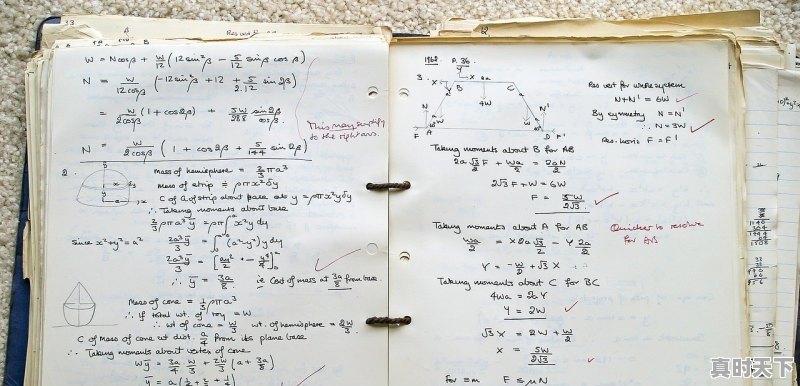 33
W = N cos β + W/12 (12 sin²β − 5/12 sin β cos β)
N = W/12cosβ (−12 sin²β + 12 + 5/2.12 sin 2β)
= W/2cosβ (1 + cos 2β) + 5W/288 sin 2β/cos β.
This may simplify
to the right ans.
N = W/2cosβ (1 + cos 2β + 5/144 sin 2β)
2.
Mass of hemisphere = 2/3 π a³
Mass of strip = ρπx²δy
C of G of strip about base as y = ρπx²yδy
∴ Taking moments about base
2/3 ρπa³ȳ = ∫ρπx²y dy
since x²+y² = a²
2a³ȳ/3 = ∫(a²−y²)y dy
2a³ȳ/3 =
∴ ȳ = 3a/8 ie C of G of mass at 3a/8 from base.
Mass of cone = 1/3 ρπa³
∴ If total wt. of toy = W
∴ wt of cone = W/3 wt. of hemisphere = 2W/3.
C of Mass of cone at dist. a/4 from its plane base
∴ Taking moments about vertex of cone
Wȳ = 3a/4 W/3 + 2W/3 (a + 3a/8)
1962 P. 36
3.
Res vert for whole system
N+N' = 6W
By symmetry N = N'
∴ N = 3W
Res. horiz F = F'
Taking moments about B for AB
2a√3/2 F + Wa/2 = 2aN/2
2√3 F + W = 6W
F = 5W/2√3
Taking moments about A for AB
Quicker to resolve
for AB
Wa/2 = X 2a√3/2 − Y 2a/2
Y = −W/2 + √3 X
Taking moments about C for BC
4Wa = 2aY
Y = 2W
√3 X = 2W + W/2
X = 5W/2√3
for = m F ≤ μN